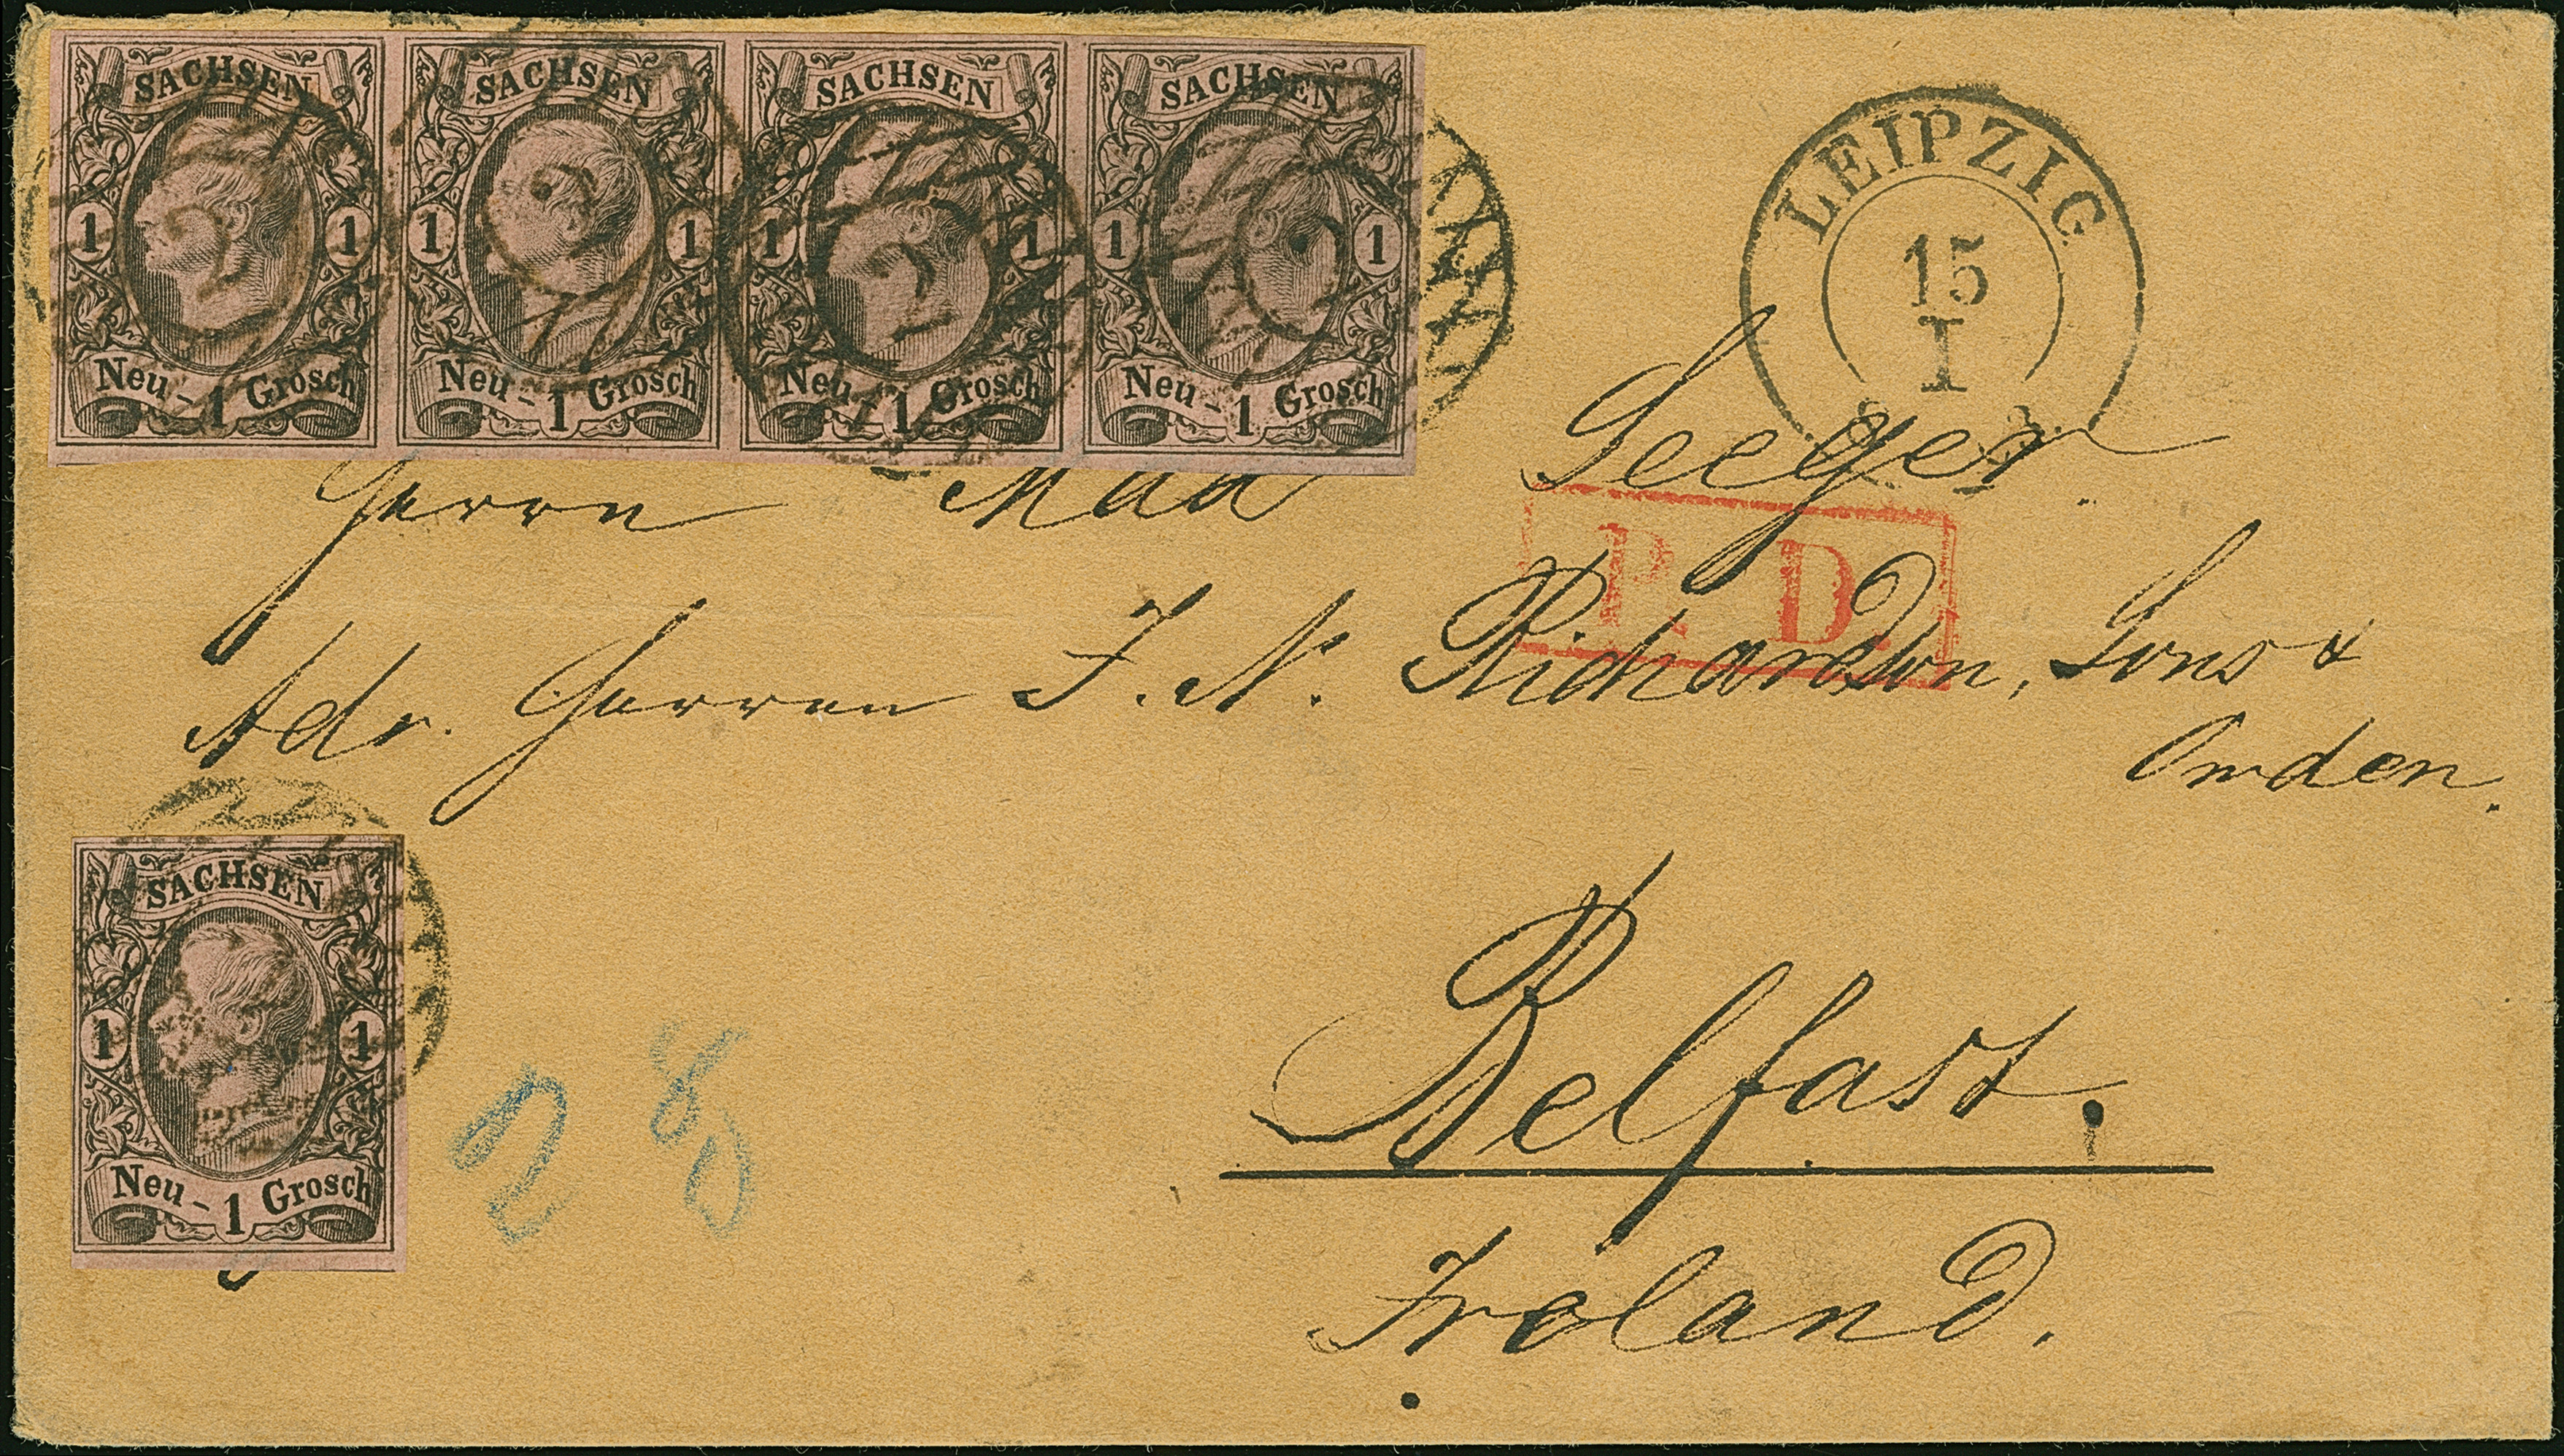 SACHSEN SACHSEN SACHSEN SACHSEN
1 1 1 1 1 1 1 1
2 2 2 2
Neu-1 Grosch Neu-1 Grosch Neu-1 Grosch Neu-1 Grosch
LEIPZIG
15
I
Herrn Max Seeger.
P. D.
Adr. Herren J. N. Richardson, Sons &
Owden.
SACHSEN
1 1
Neu-1 Grosch
2
Belfast.
Ireland.